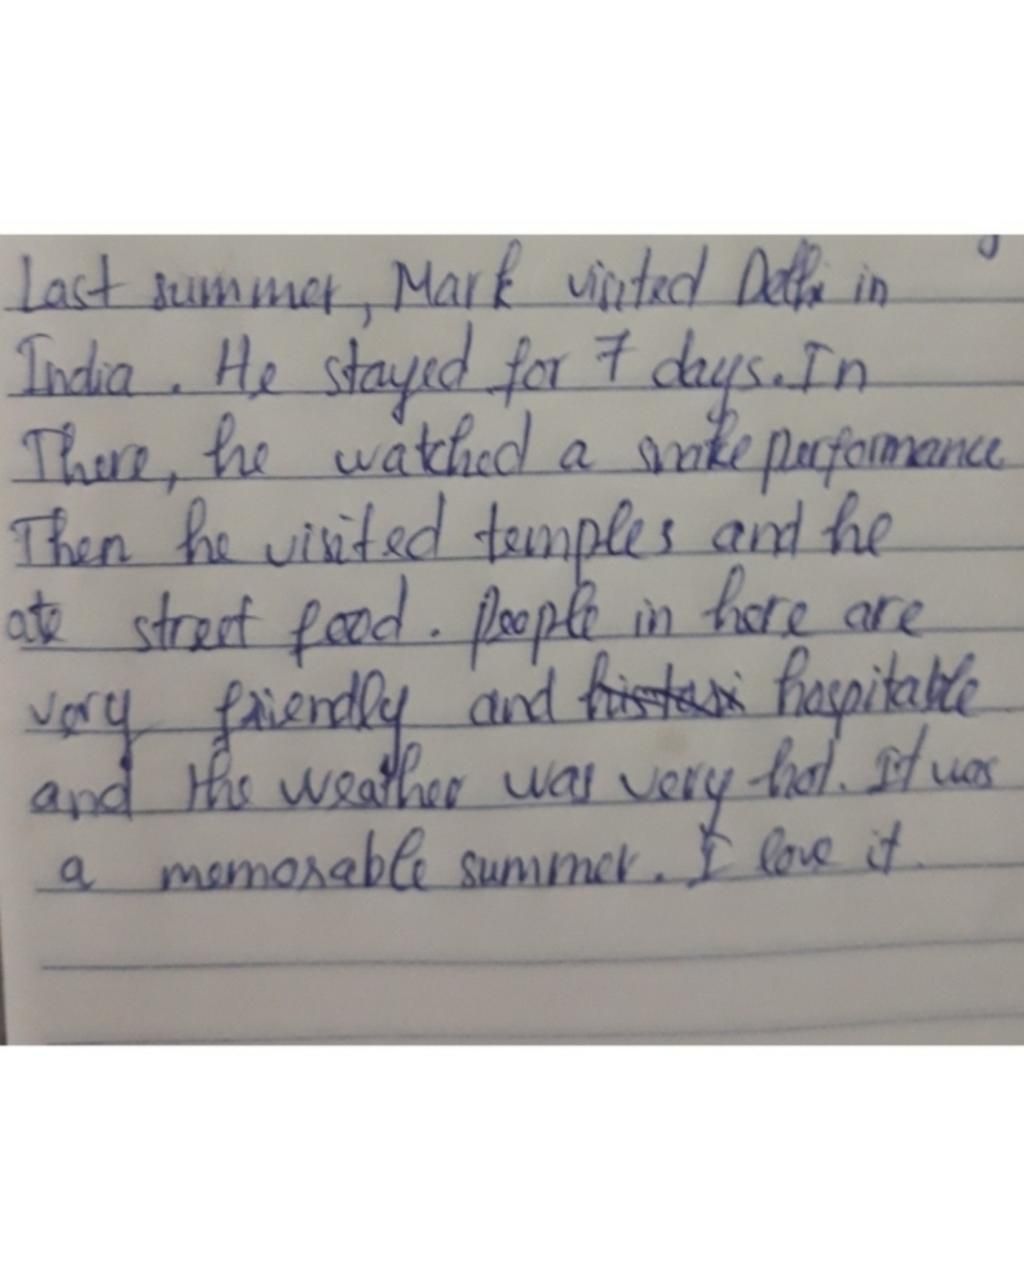 Last summer, Mark visited Delhi in
India. He stayed for 7 days. In
There, he watched a snake performance
Then he visited temples and he
ate street food. People in here are
very friendly and hospitable
and the weather was very hot. It was
a memorable summer. I love it